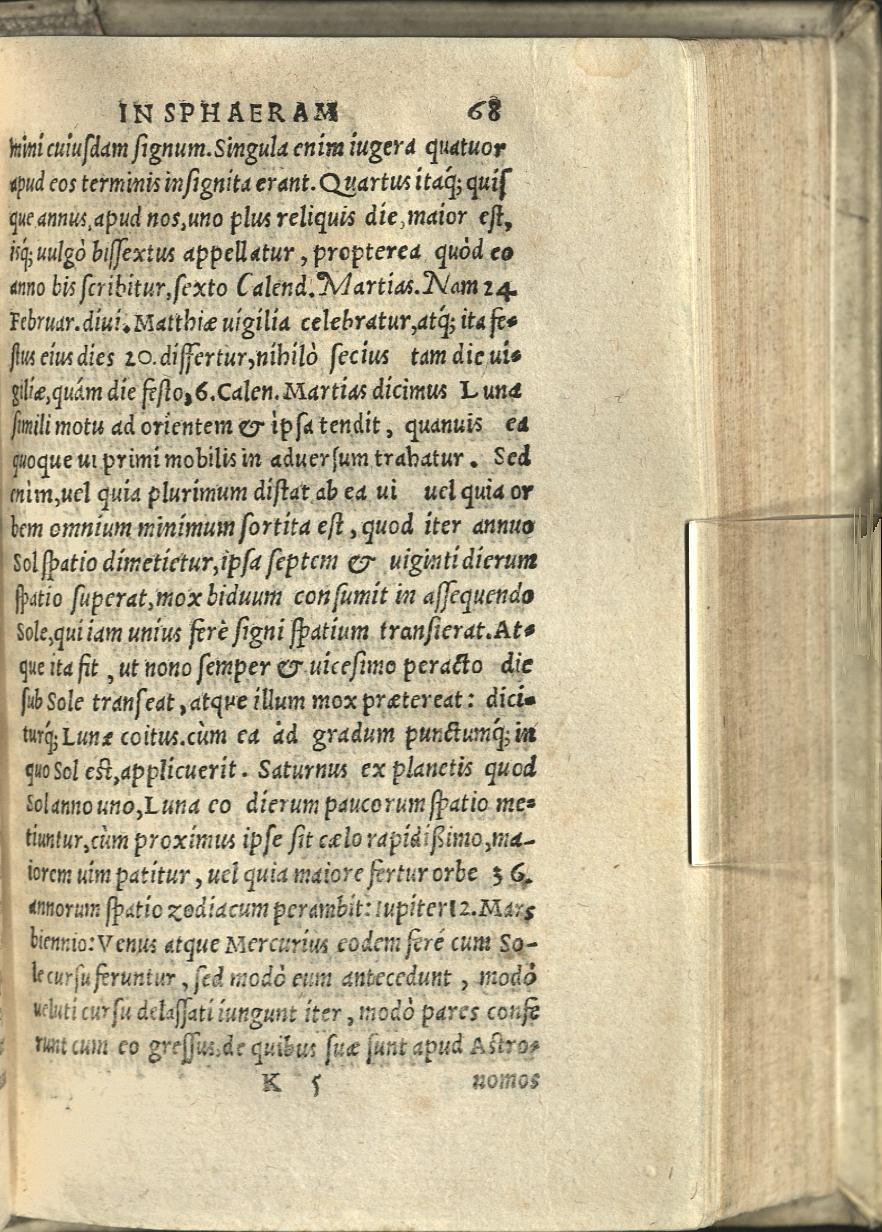 IN SPHAERAM 68
mini cuiuſdam ſignum. Singula enim iugera quatuor
apud eos terminis inſignita erant. Quartus itaq; quiſ
que annus, apud nos, uno plus reliquis die, maior eſt,
iſq; uulgò biſſextus appellatur, propterea quòd eo
anno bis ſcribitur, ſexto Calend. Martias. Nam 24.
Februar. diui. Matthiæ uigilia celebratur, atq; ita fe-
ſtus eius dies 20. differtur, nihilò ſecius tam die ui-
giliæ, quám die feſto, 6. Calen. Martias dicimus Luna
ſimili motu ad orientem & ipſa tendit, quanuis ea
quoque ui primi mobilis in aduerſum trahatur. Sed
enim, uel quia plurimum diſtat ab ea ui uel quia or
bem omnium minimum ſortita eſt, quod iter annuo
Sol ſpatio dimetietur, ipſa ſeptem & uiginti dierum
ſpatio ſuperat, mox biduum conſumit in aſſequendo
Sole, qui iam unius ferè ſigni ſpatium tranſierat. At-
que ita fit, ut nono ſemper & uiceſimo peracto die
ſub Sole tranſeat, atque illum mox prætereat: dici-
turq; Lunæ coitus. cùm ea àd gradum punctumq; in
quo Sol eſt, applicuerit. Saturnus ex planetis quod
Sol anno uno, Luna eo dierum paucorum ſpatio me-
tiuntur, cùm proximus ipſe ſit cælo rapidißimo, ma-
iorem uim patitur, uel quia maiore fertur orbe 36.
annorum ſpatio zodiacum perambit: Iupiter 12. Mars
biennio: Venus atque Mercurius eodem feré cum So-
le curſu feruntur, ſed modò eum antecedunt, modò
ueluti curſu delaſſati iungunt iter, modò pares confe
runt cum eo greſſus, de quibus ſuæ ſunt apud Aſtro-
K 5 nomos